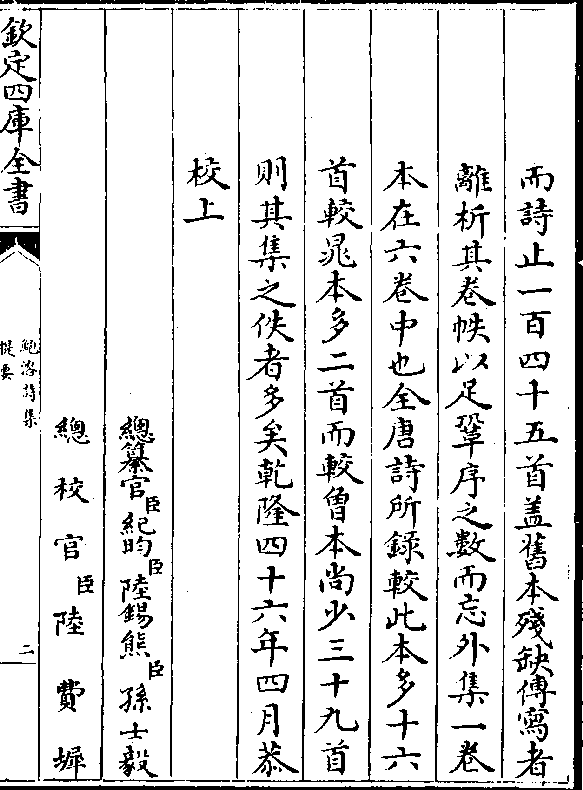 而詩止一百四十五首盖舊本殘缺傳寫者
離析其卷帙以足鞏序之數而忘外集一卷
本在六卷中也全唐詩所録較此本多十六
首較晁本多二首而較曾本尚少三十九首
則其集之佚者多矣乾隆四十六年四月恭
校上
總纂官臣紀昀臣陸錫熊臣孫士毅
總校官臣陸費墀
欽定四庫全書
鮑溶詩集
提要
二